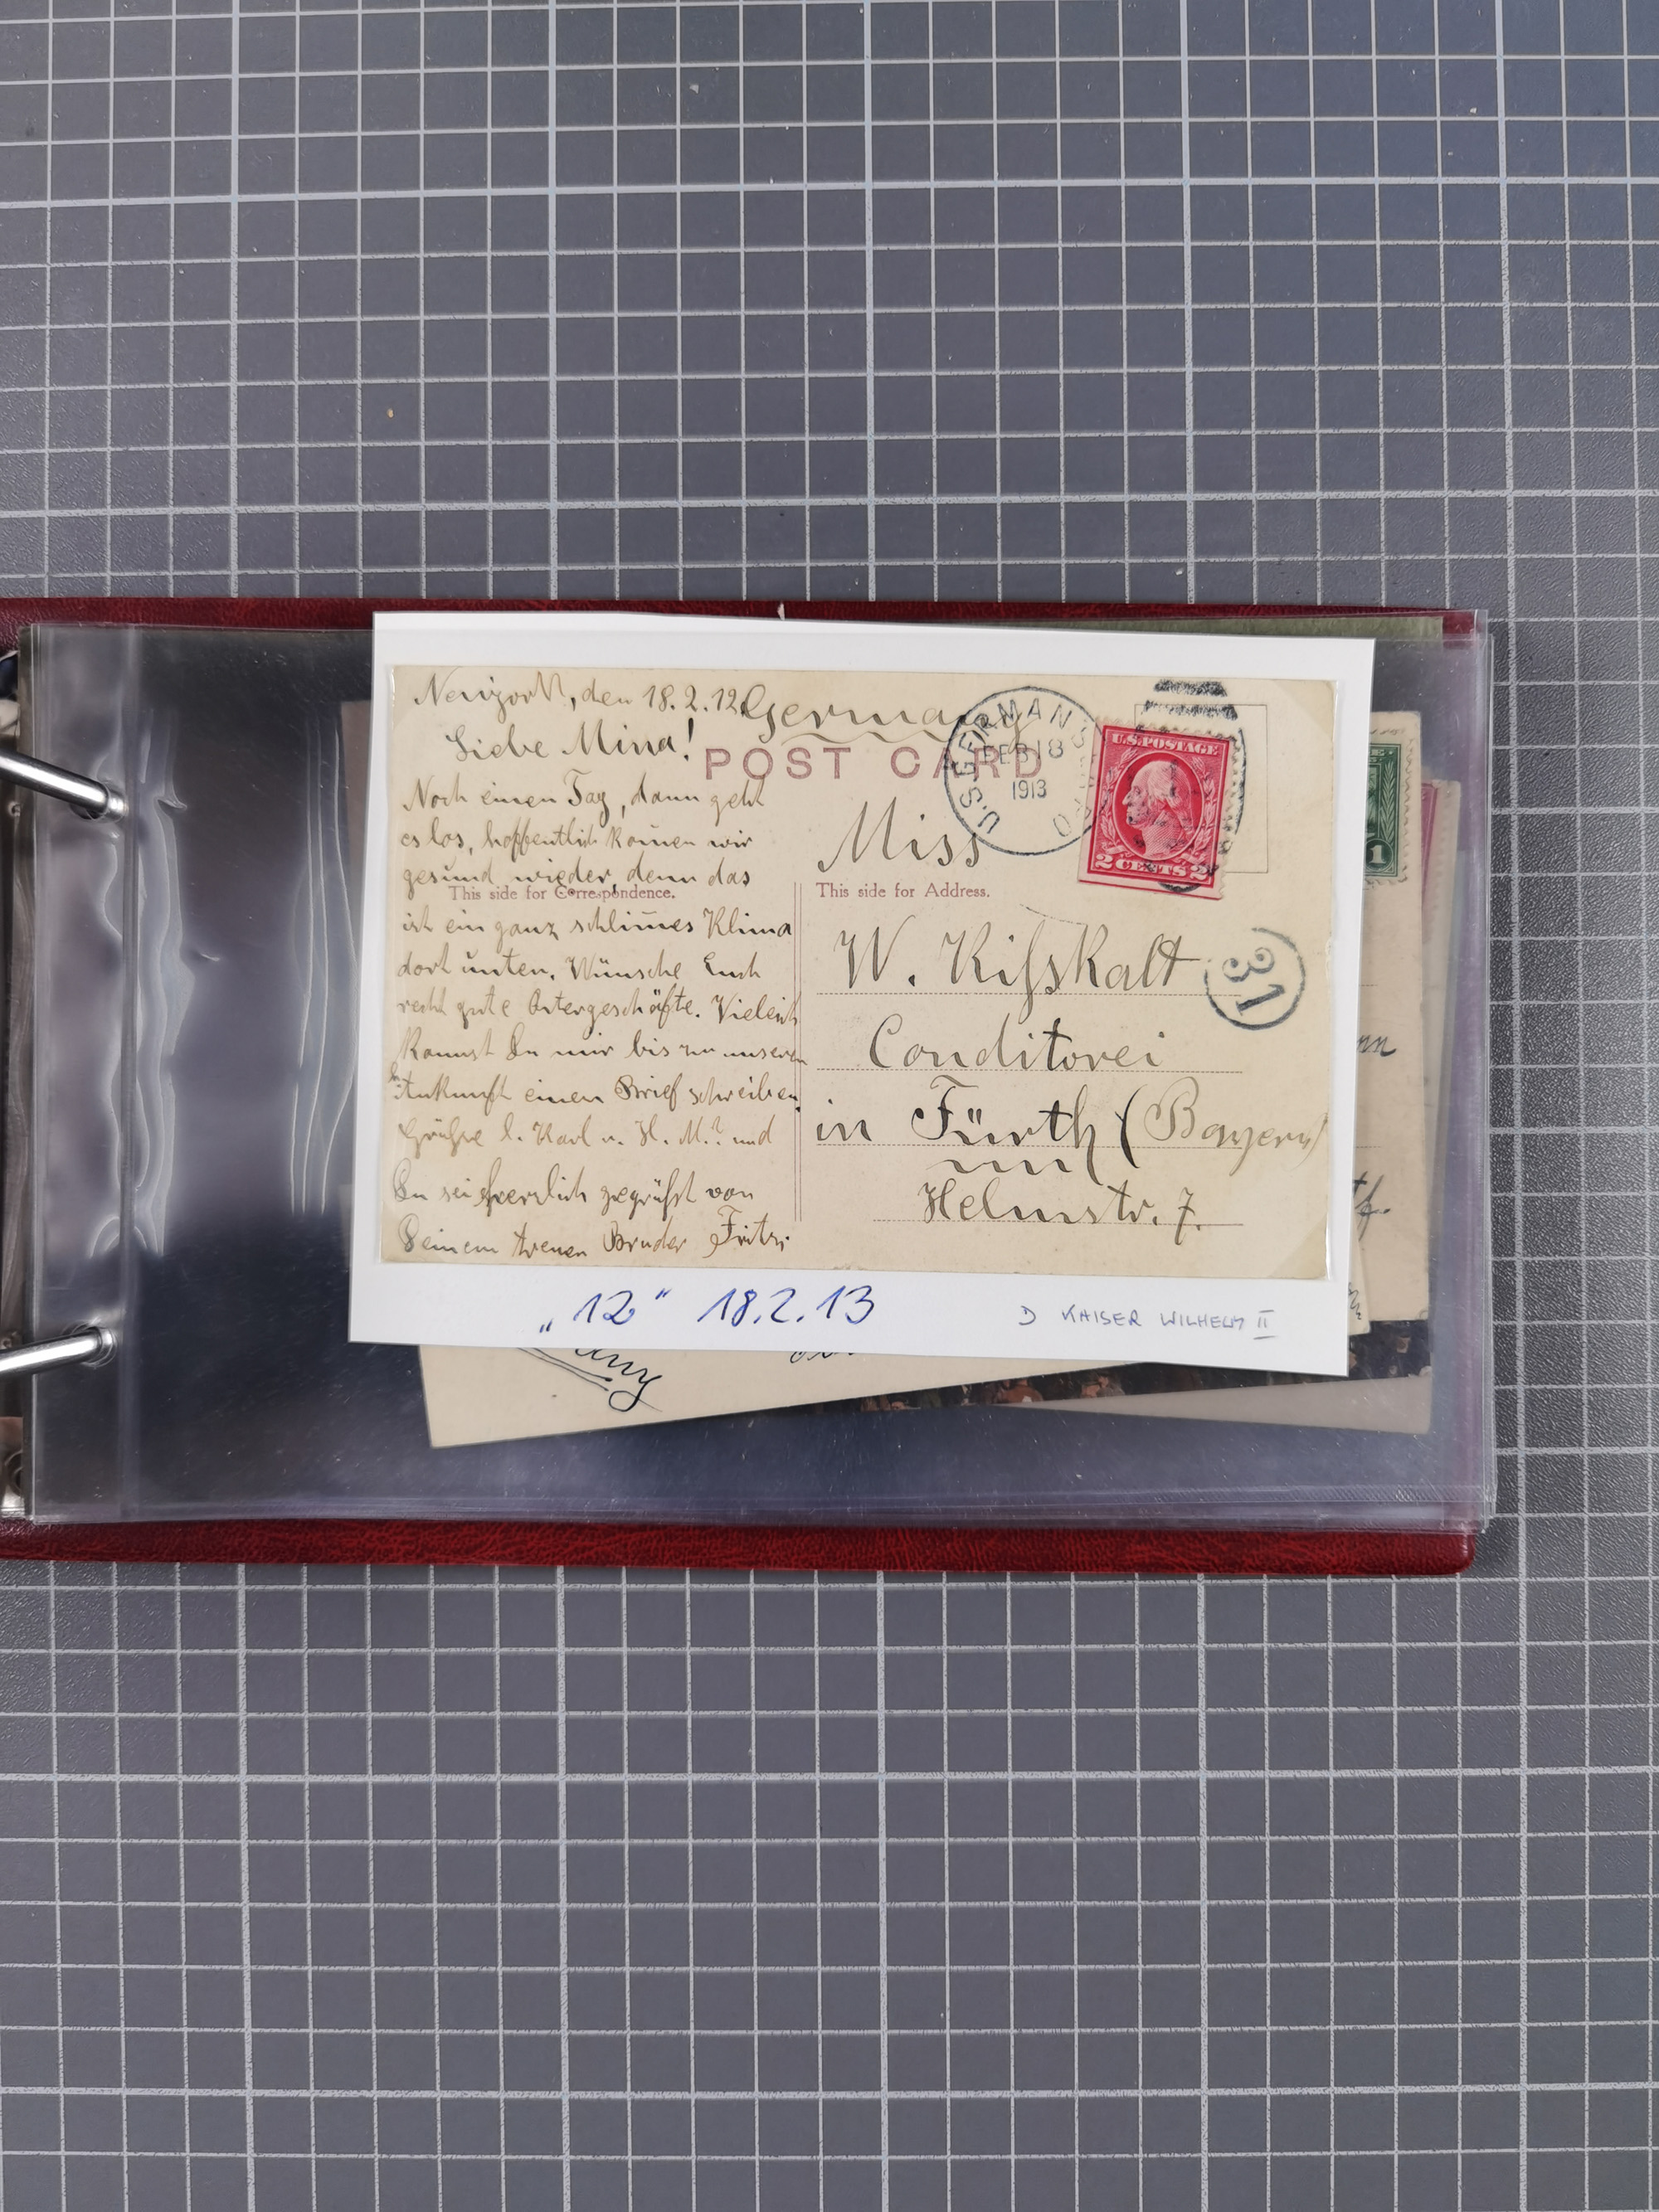 Newyork, den 18.2.12.
Germany
Liebe Mina!
POST CARD
U.S. GERMAN SEAPO
FEB 18
1913
U.S. POSTAGE
2 CENTS 2
Noch einen Tag, dann geht
es los, hoffentlich kom̄en wir
gesund wieder, denn das
This side for Correspondence.
ist ein ganz schlim̄es Klima
dort unten. Wünsche Euch
recht gute Ostergeschäfte. Vieleich
kannst Du mir bis zu unseren
Ankunft einen Brief schreiben.
Grüße l. Karl u. H. M.? und
Du sei herzlich gegrüßt von
Deinem treuen Bruder Fritz.
Miss
This side for Address.
W. Kißkalt
31
Conditorei
in Fürth (Bayern)
Helmstr. 7.
„12" 18.2.13
D KAISER WILHELM II
1